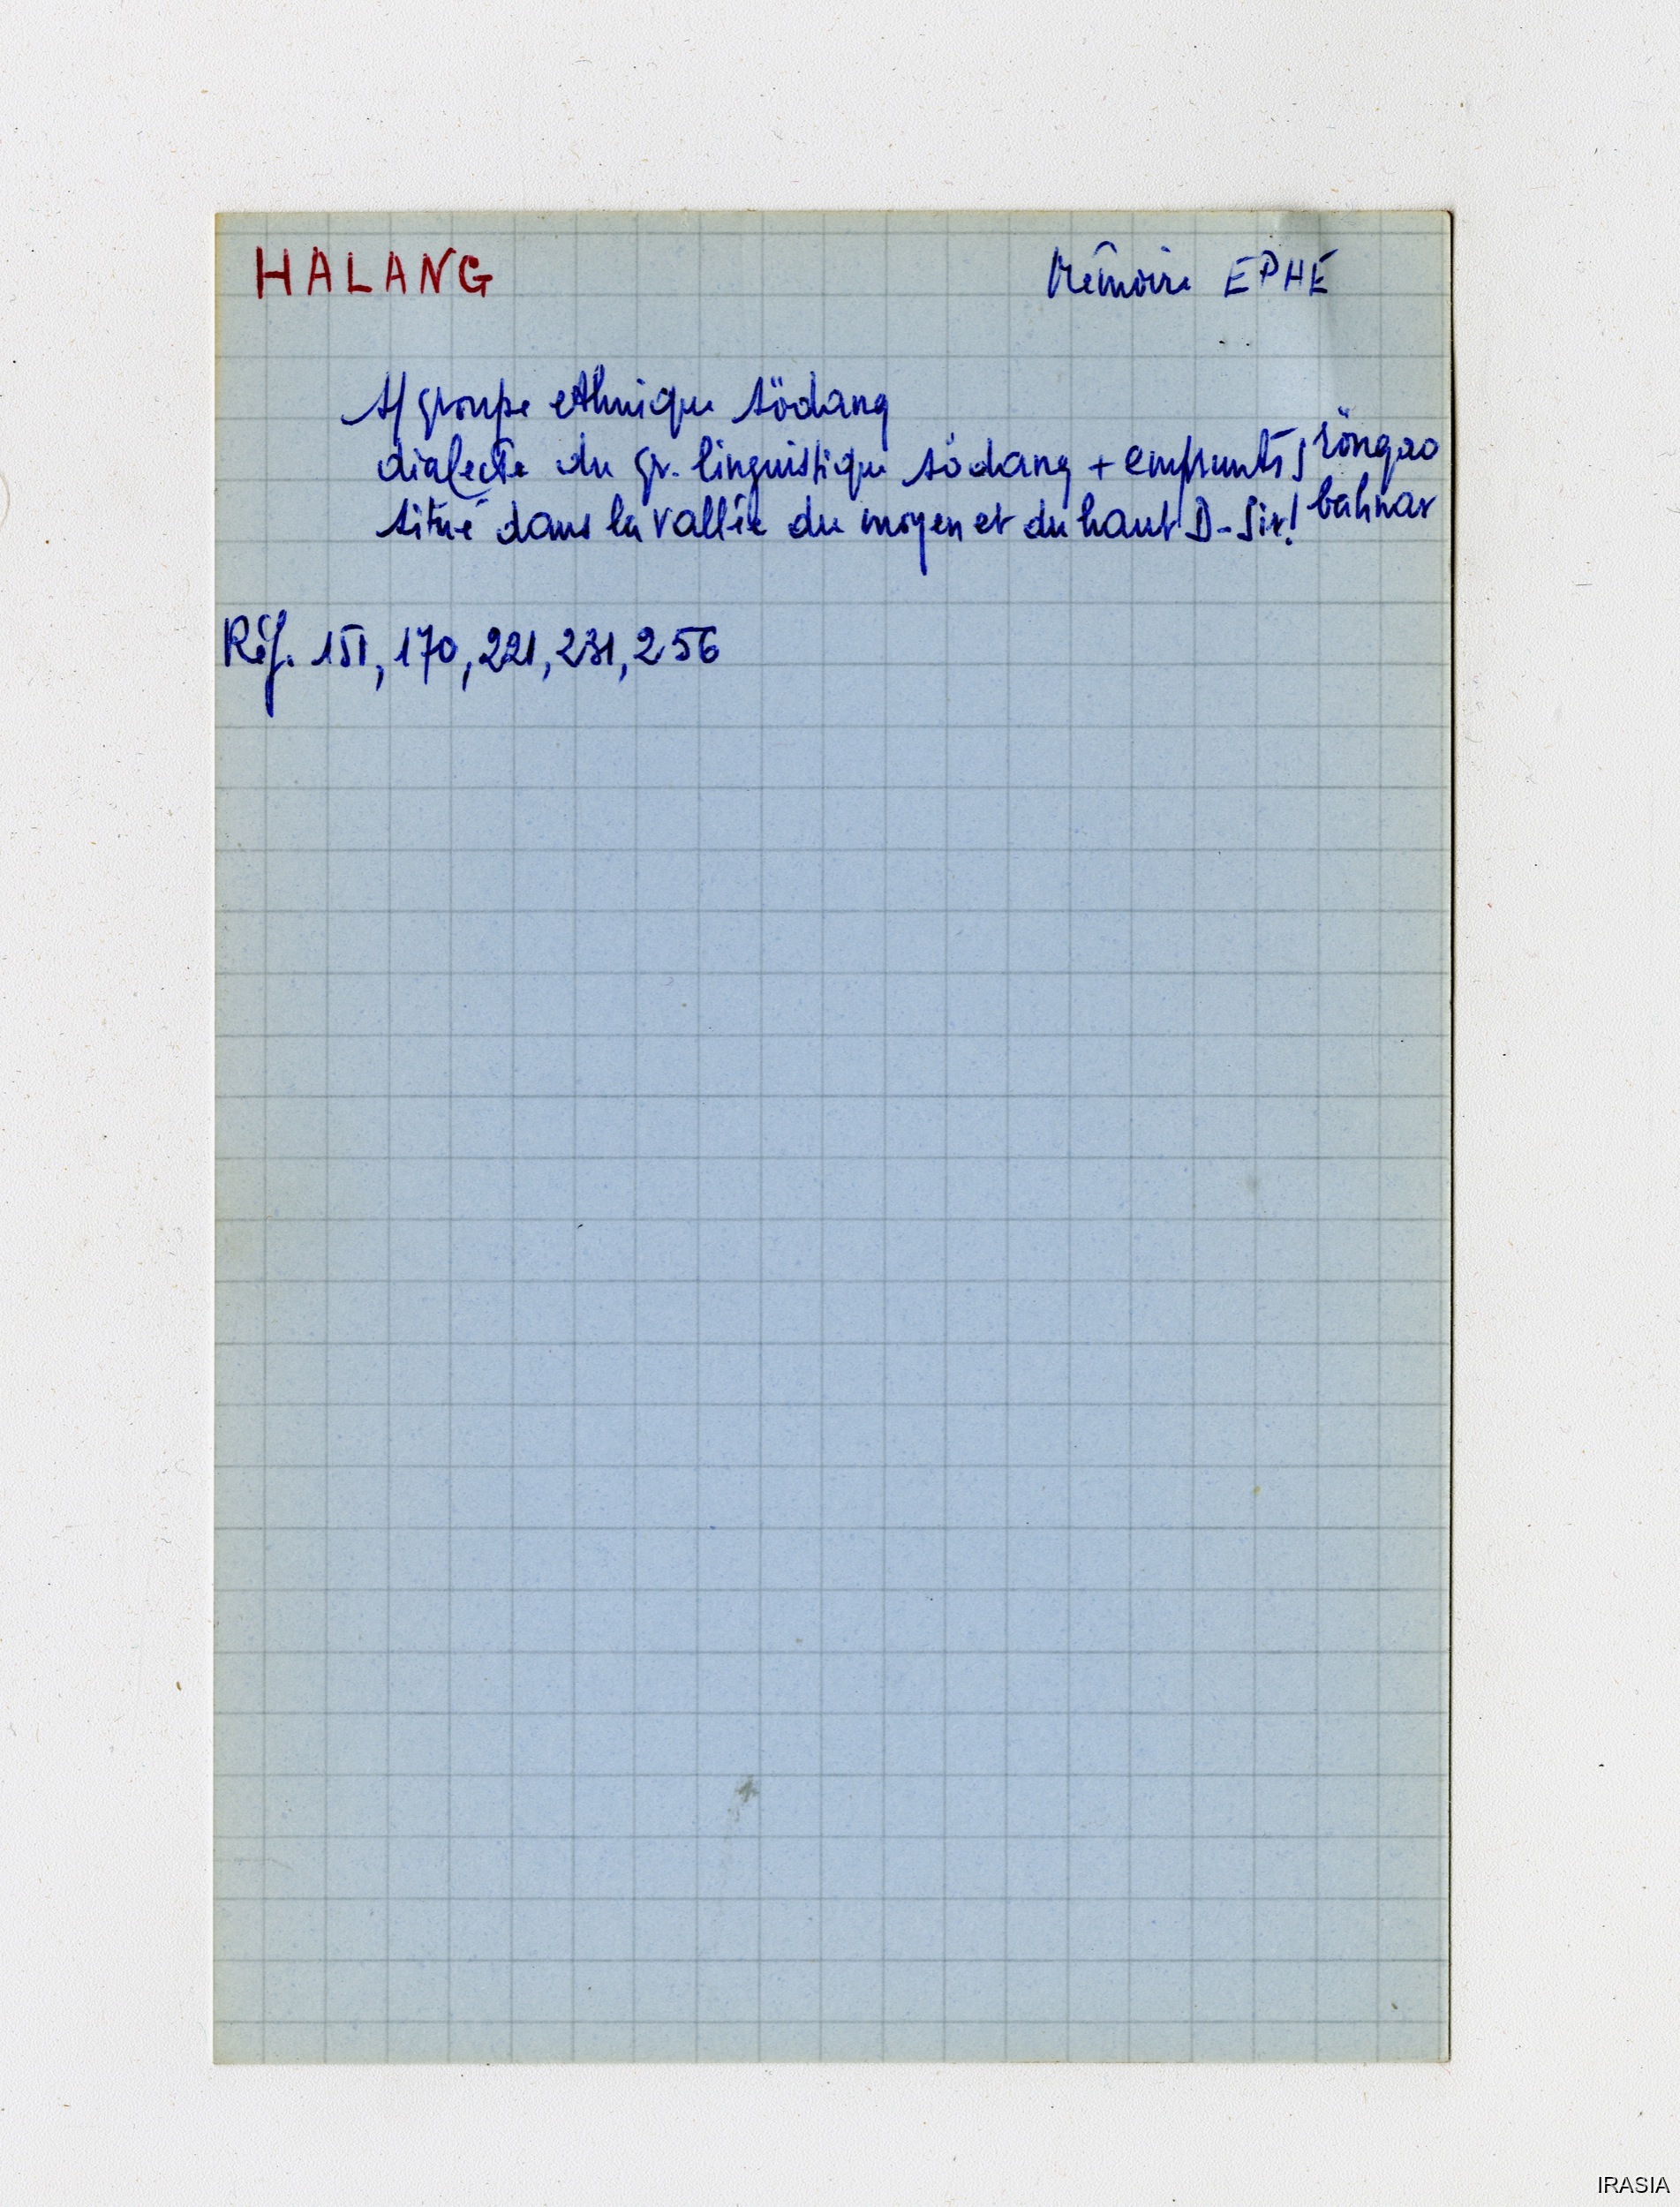 HALANG
Mémoire EPHE
s/groupe ethnique södang
dialecte du gr. linguistique södang + emprunts röngao
bahnar
situé dans la vallée du moyen et du haut D-Sir!
Réf. 151, 170, 221, 231, 256
IRASIA